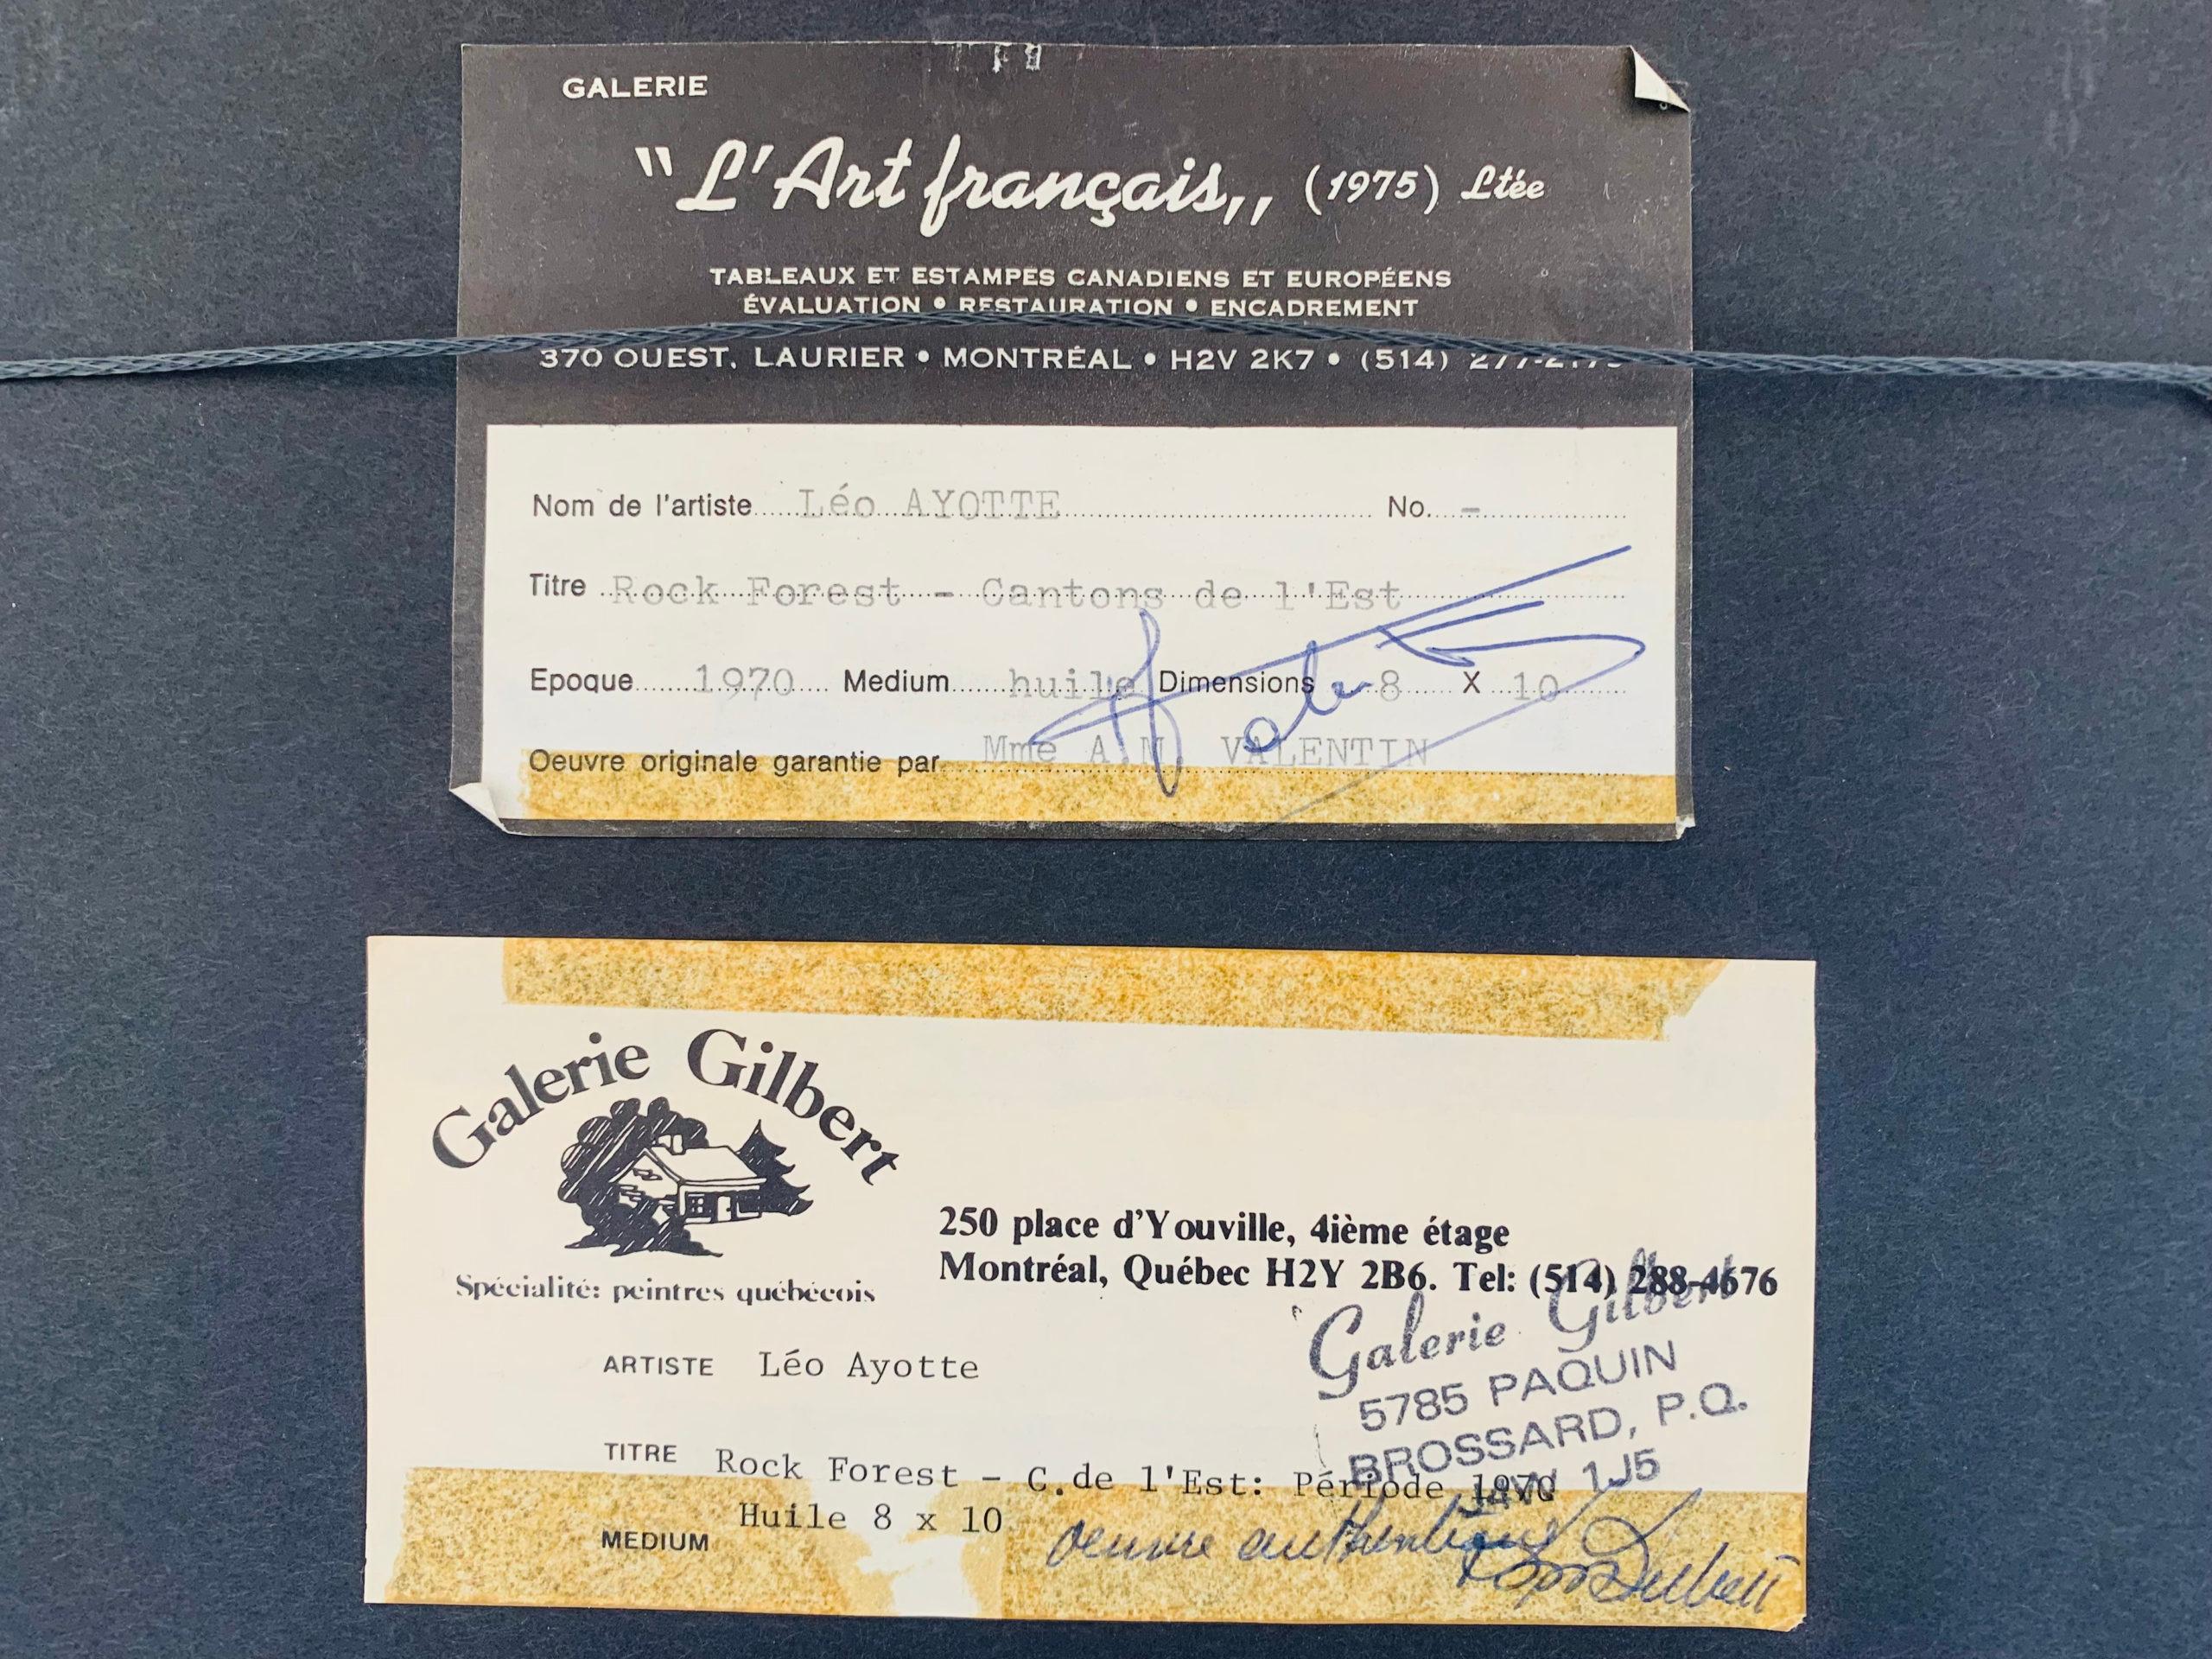 GALERIE
"L'Art français,, (1975) Ltée
TABLEAUX ET ESTAMPES CANADIENS ET EUROPÉENS
ÉVALUATION • RESTAURATION • ENCADREMENT
370 OUEST, LAURIER • MONTRÉAL • H2V 2K7 • (514)
Nom de l'artiste Léo AYOTTE No. -
Titre Rock Forest - Cantons de l'Est
Epoque 1970 Medium huile Dimensions 8 X 10
Oeuvre originale garantie par Mme A.M. VALENTIN
Galerie Gilbert
Spécialité: peintres québécois
250 place d'Youville, 4ième étage
Montréal, Québec H2Y 2B6. Tel: (514) 288-4676
Galerie Gilbert
5785 PAQUIN
BROSSARD, P.Q.
1J5
ARTISTE Léo Ayotte
TITRE Rock Forest - C.de l'Est: Période 1970
Huile 8 x 10
MEDIUM
Oeuvre authentique